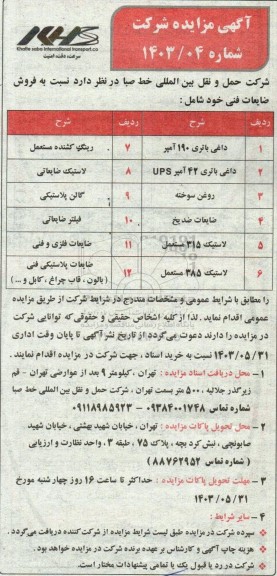 آگهی مزایده شرکت
شماره ۱۴۰۳/۰۴
KHS
Khatte saba international transport co
سرعت دقت امنیت
شرکت حمل و نقل بین المللی خط صبا در نظر دارد نسبت به فروش
ضایعات فنی خود شامل :
ردیف شرح ردیف شرح
۱ داغی باتری ۱۹۰ آمپر ۷ رینگ کشنده مستعمل
۲ داغی باتری ۴۲ آمپر UPS ۸ لاستیک ضایعاتی
۳ روغن سوخته ۹ گالن پلاستیکی
۴ ضایعات ضدیخ ۱۰ فیلتر ضایعاتی
۵ لاستیک ۳۱۵ مستعمل ۱۱ ضایعات فلزی و فنی
۶ لاستیک ۳۸۵ مستعمل ۱۲ ضایعات پلاستیکی فنی
(بالون ، قاب چراغ ، کابل و ...)
را مطابق با شرایط عمومی و مشخصات مندرج در شرایط شرکت از طریق مزایده
عمومی اقدام نماید . لذا از کلیه اشخاص حقیقی و حقوقی که توانایی شرکت
در مزایده را دارند دعوت می‌گردد از تاریخ نشر آگهی تا پایان وقت اداری
۱۴۰۳/۰۵/۳۱ نسبت به خرید اسناد ، جهت شرکت در مزایده اقدام نمایند .
۱ – محل دریافت اسناد مزایده : تهران ، کیلومتر ۹ بعد از عوارضی تهران – قم
زیرگذر جلالیه ، ۵۰۰ متر بسمت تهران ، شرکت حمل و نقل بین‌المللی خط صبا
شماره تماس ۰۹۳۸۴۰۰۱۷۴۸ – ۰۹۱۱۸۹۸۵۹۲۳
۲ – محل تحویل پاکات مزایده : تهران ، خیابان شهید بهشتی ، خیابان شهید
صابونچی ، نبش کرد بچه ، پلاک ۷۵ ، طبقه ۳ ، واحد نظارت و ارزیابی
( شماره تماس ۸۸۷۶۲۹۵۲ )
۳ – مهلت تحویل پاکات مزایده : حداکثر تا ساعت ۱۶ روز چهار شنبه مورخ
۱۴۰۳/۰۵/۳۱
۴ – سایر شرایط :
سپرده شرکت در مزایده طبق لیست شرایط مزایده از شرکت کننده دریافت می‌گردد .
هزینه چاپ آگهی و کارشناس بر عهده برنده شرکت در مزایده خواهد بود .
شرکت در رد یا قبول یک یا تمامی پیشنهادات مختار است .